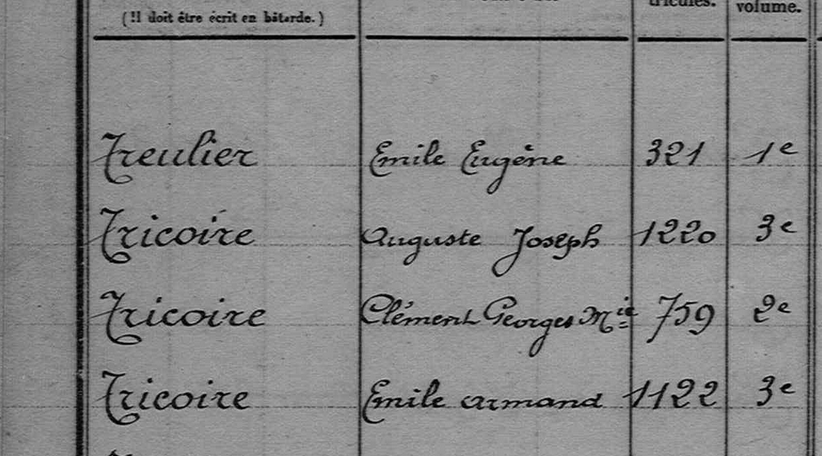 (Il doit être écrit en bâtarde.) tricules. volume.
Treulier Emile Eugène 321 1e
Tricoire Auguste Joseph 1220 3e
Tricoire Clément Georges Mie 759 2e
Tricoire Emile armand 1122 3e